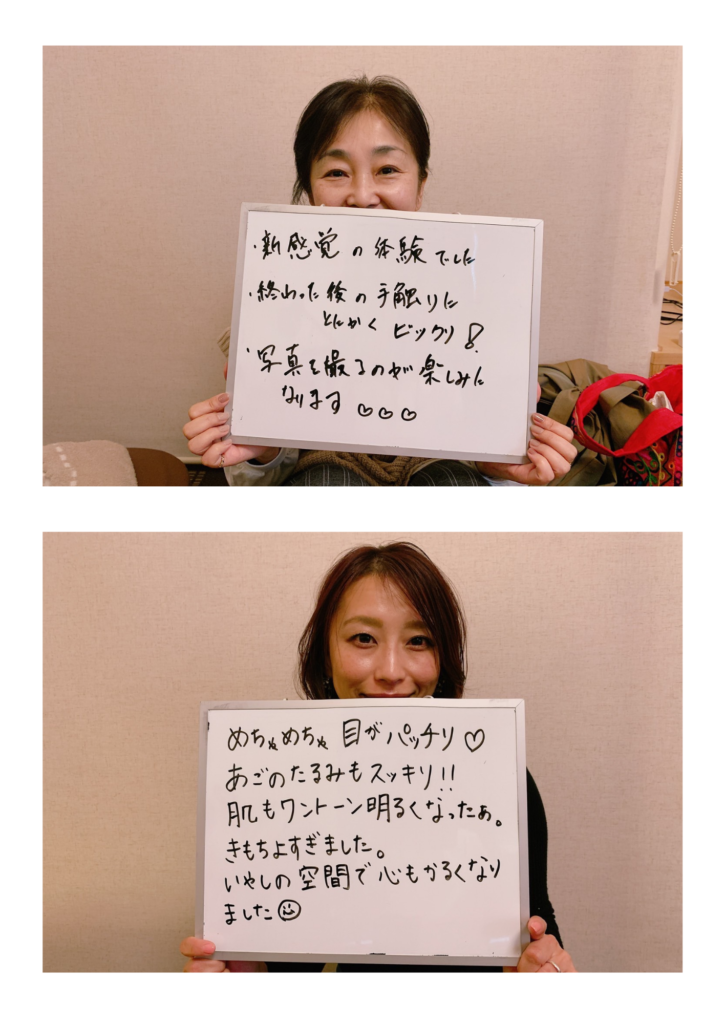 ・新感覚の体験でした
・終わった後の手触りに
とにかくビックリ!
・写真を撮るのが楽しみに
なります♡♡♡
めちゃめちゃ目がパッチリ♡
あごのたるみもスッキリ!!
肌もワントーン明るくなったぁ。
きもちよすぎました。
いやしの空間で心もかるくなり
ました☺